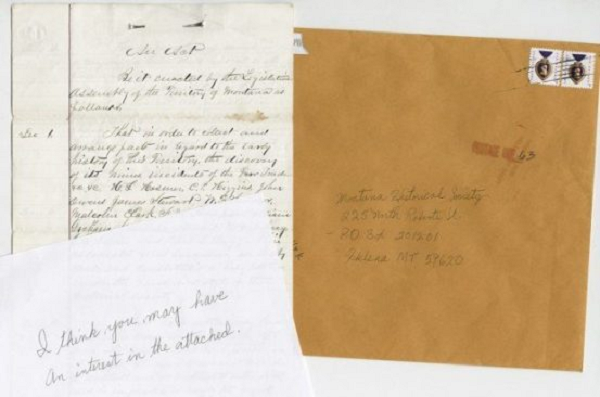 An Act
Be it enacted by the Legislative
Assembly of the Territory of Montana as
follows
Sec 1.
That in order to collect and
arrange facts in regard to the early
history of this Territory, the discovery
of its mines incidents of the
H. L. Hosmer C. P. Higgins John
Owens James Stewart W.
Malcolm Clark
I think you may have
an interest in the attached.
63
Montana Historical Society
225 North Roberts St.
PO 201201
Helena MT 59620